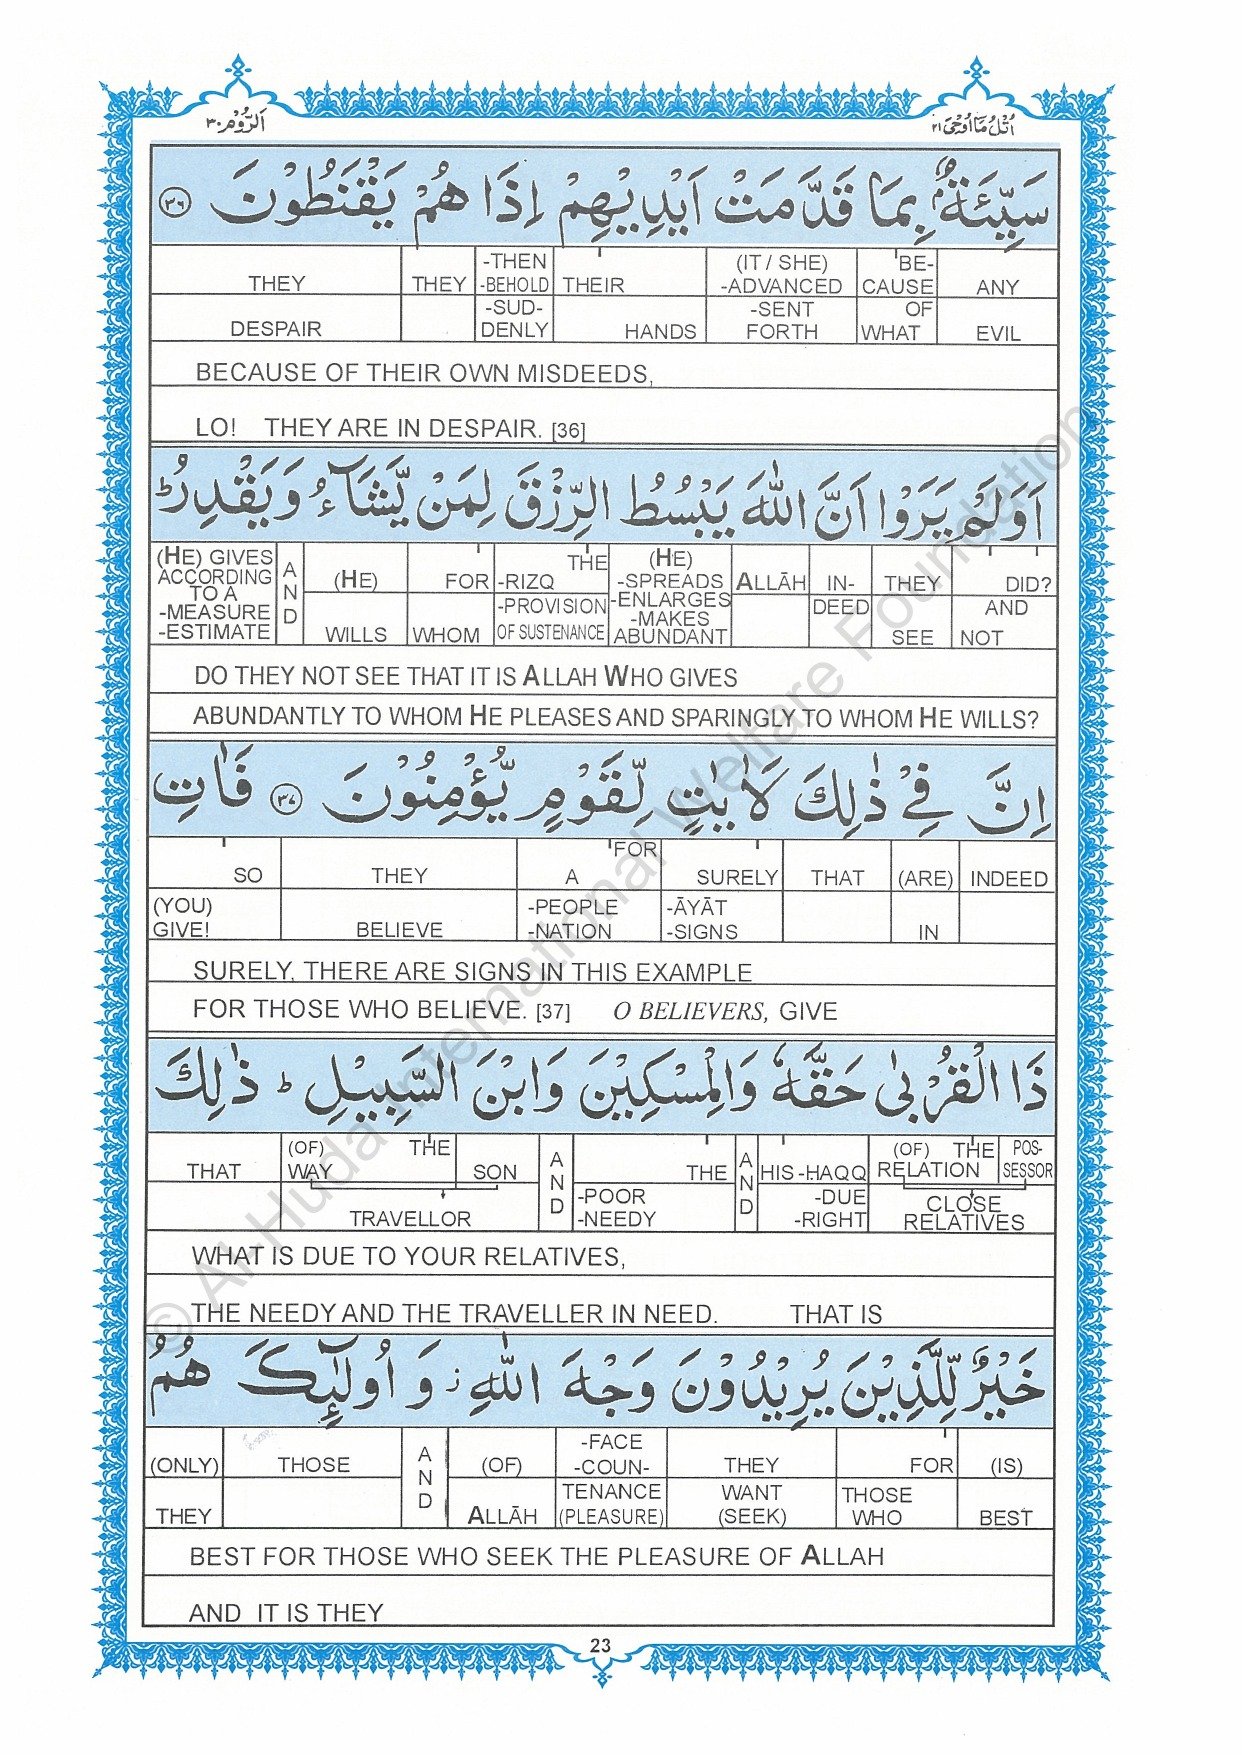 اَلرُّوْم ٣٠
اُتْلُ مَآ اُوْحِیَ ٢١
سَیِّئَةٌۢ بِمَا قَدَّمَتْ اَیْدِیْهِمْ اِذَا هُمْ یَقْنَطُوْنَ ٣٦
THEY THEY -THEN -BEHOLD THEIR (IT / SHE) -ADVANCED BE- CAUSE ANY
DESPAIR -SUD- DENLY HANDS -SENT FORTH OF WHAT EVIL
BECAUSE OF THEIR OWN MISDEEDS,
LO! THEY ARE IN DESPAIR. [36]
اَوَلَمْ یَرَوْا اَنَّ اللّٰهَ یَبْسُطُ الرِّزْقَ لِمَنْ یَّشَآءُ وَیَقْدِرُ ؕ
(HE) GIVES ACCORDING TO A -MEASURE -ESTIMATE AND (HE) FOR THE -RIZQ (HE) -SPREADS -ENLARGES -MAKES ABUNDANT ALLĀH IN- THEY DID?
WILLS WHOM -PROVISION OF SUSTENANCE DEED SEE AND NOT
DO THEY NOT SEE THAT IT IS ALLAH WHO GIVES
ABUNDANTLY TO WHOM HE PLEASES AND SPARINGLY TO WHOM HE WILLS?
اِنَّ فِیْ ذٰلِكَ لَاٰیٰتٍ لِّقَوْمٍ یُّؤْمِنُوْنَ ٣٧ فَاٰتِ
SO THEY FOR A SURELY THAT (ARE) INDEED
(YOU) GIVE! BELIEVE -PEOPLE -NATION -ĀYĀT -SIGNS IN
SURELY, THERE ARE SIGNS IN THIS EXAMPLE
FOR THOSE WHO BELIEVE. [37] O BELIEVERS, GIVE
ذَا الْقُرْبٰی حَقَّهٗ وَالْمِسْكِیْنَ وَابْنَ السَّبِیْلِ ؕ ذٰلِكَ
THAT (OF) THE WAY SON AND THE AND HIS -HAQQ (OF) THE RELATION POS- SESSOR
TRAVELLOR -POOR -NEEDY -DUE -RIGHT CLOSE RELATIVES
WHAT IS DUE TO YOUR RELATIVES,
THE NEEDY AND THE TRAVELLER IN NEED. THAT IS
خَیْرٌ لِّلَّذِیْنَ یُرِیْدُوْنَ وَجْهَ اللّٰهِ ؗ وَ اُولٰٓئِكَ هُمُ
(ONLY) THOSE AND (OF) -FACE -COUN- THEY FOR (IS)
THEY ALLĀH TENANCE (PLEASURE) WANT (SEEK) THOSE WHO BEST
BEST FOR THOSE WHO SEEK THE PLEASURE OF ALLAH
AND IT IS THEY
23
© Al-Huda International Welfare Foundation